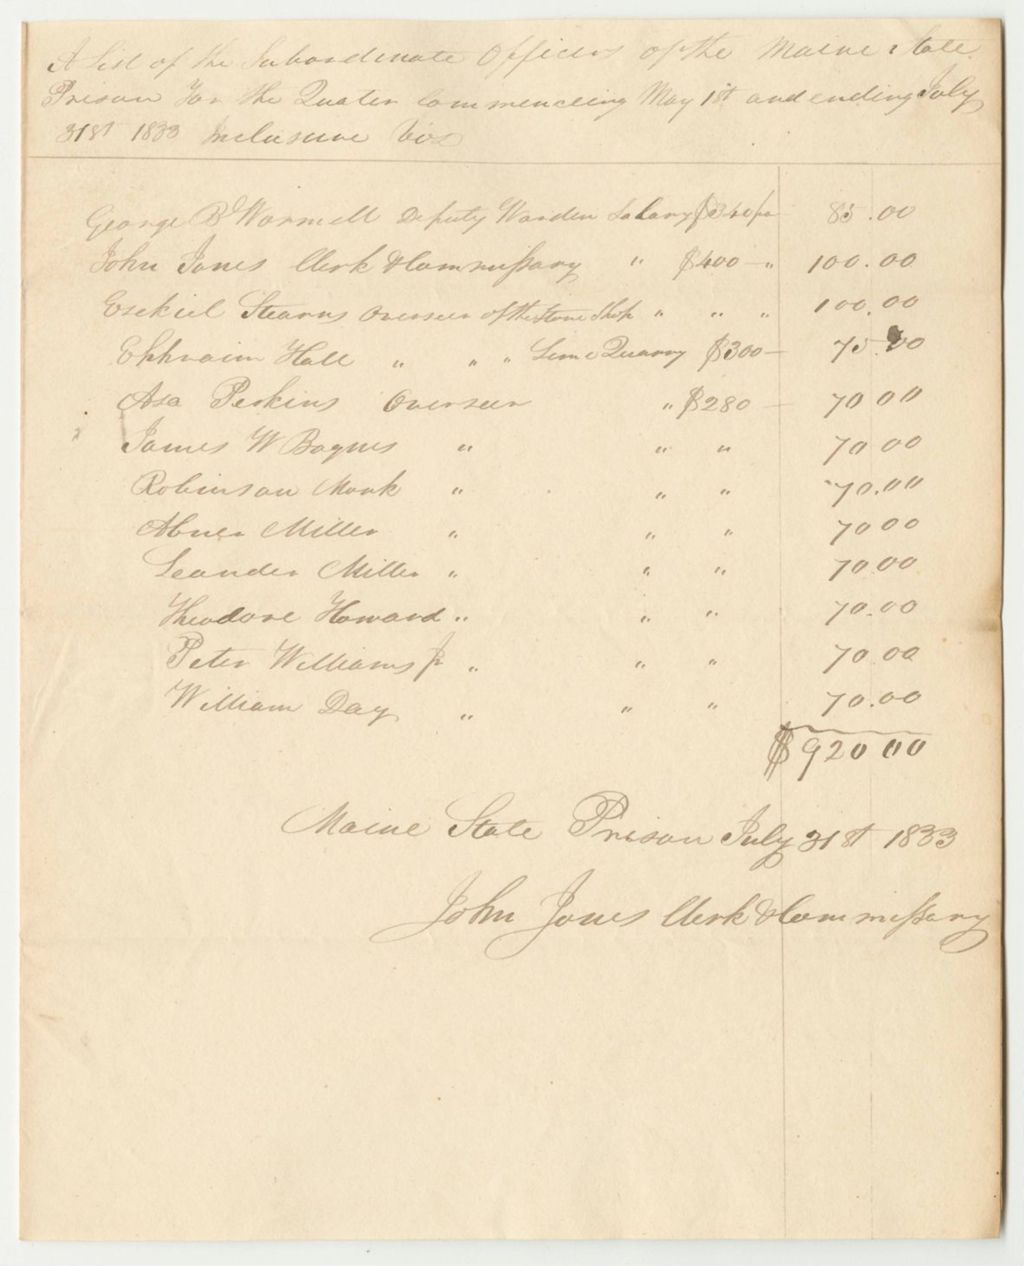 A List of the Subordinate Officers of the Maine State
Prison For the Quater Commenceing May 1st and ending July
31st 1833 Inclusive Viz
George B Wormell Deputy Warden Salary $340 pr 85.00
John Jones Clerk & Commissary " $400 — " 100.00
Ezekiel Stearns Overseer of the Stone Shop " " " 100.00
Ephraim Hall " " " Lime Quarry $300 — 75.00
Asa Perkins Overseer " $280 — 70 00
James W " " " 70.00
Robinson Monk " " " 70.00
Abner Miller " " " 70 00
Leander Miller " " " 70.00
Theodore Howard " " " 70.00
Peter Williams Jr " " " 70.00
William Day " " " 70.00
$920 00
Maine State Prison July 31st 1833
John Jones Clerk & Commissary